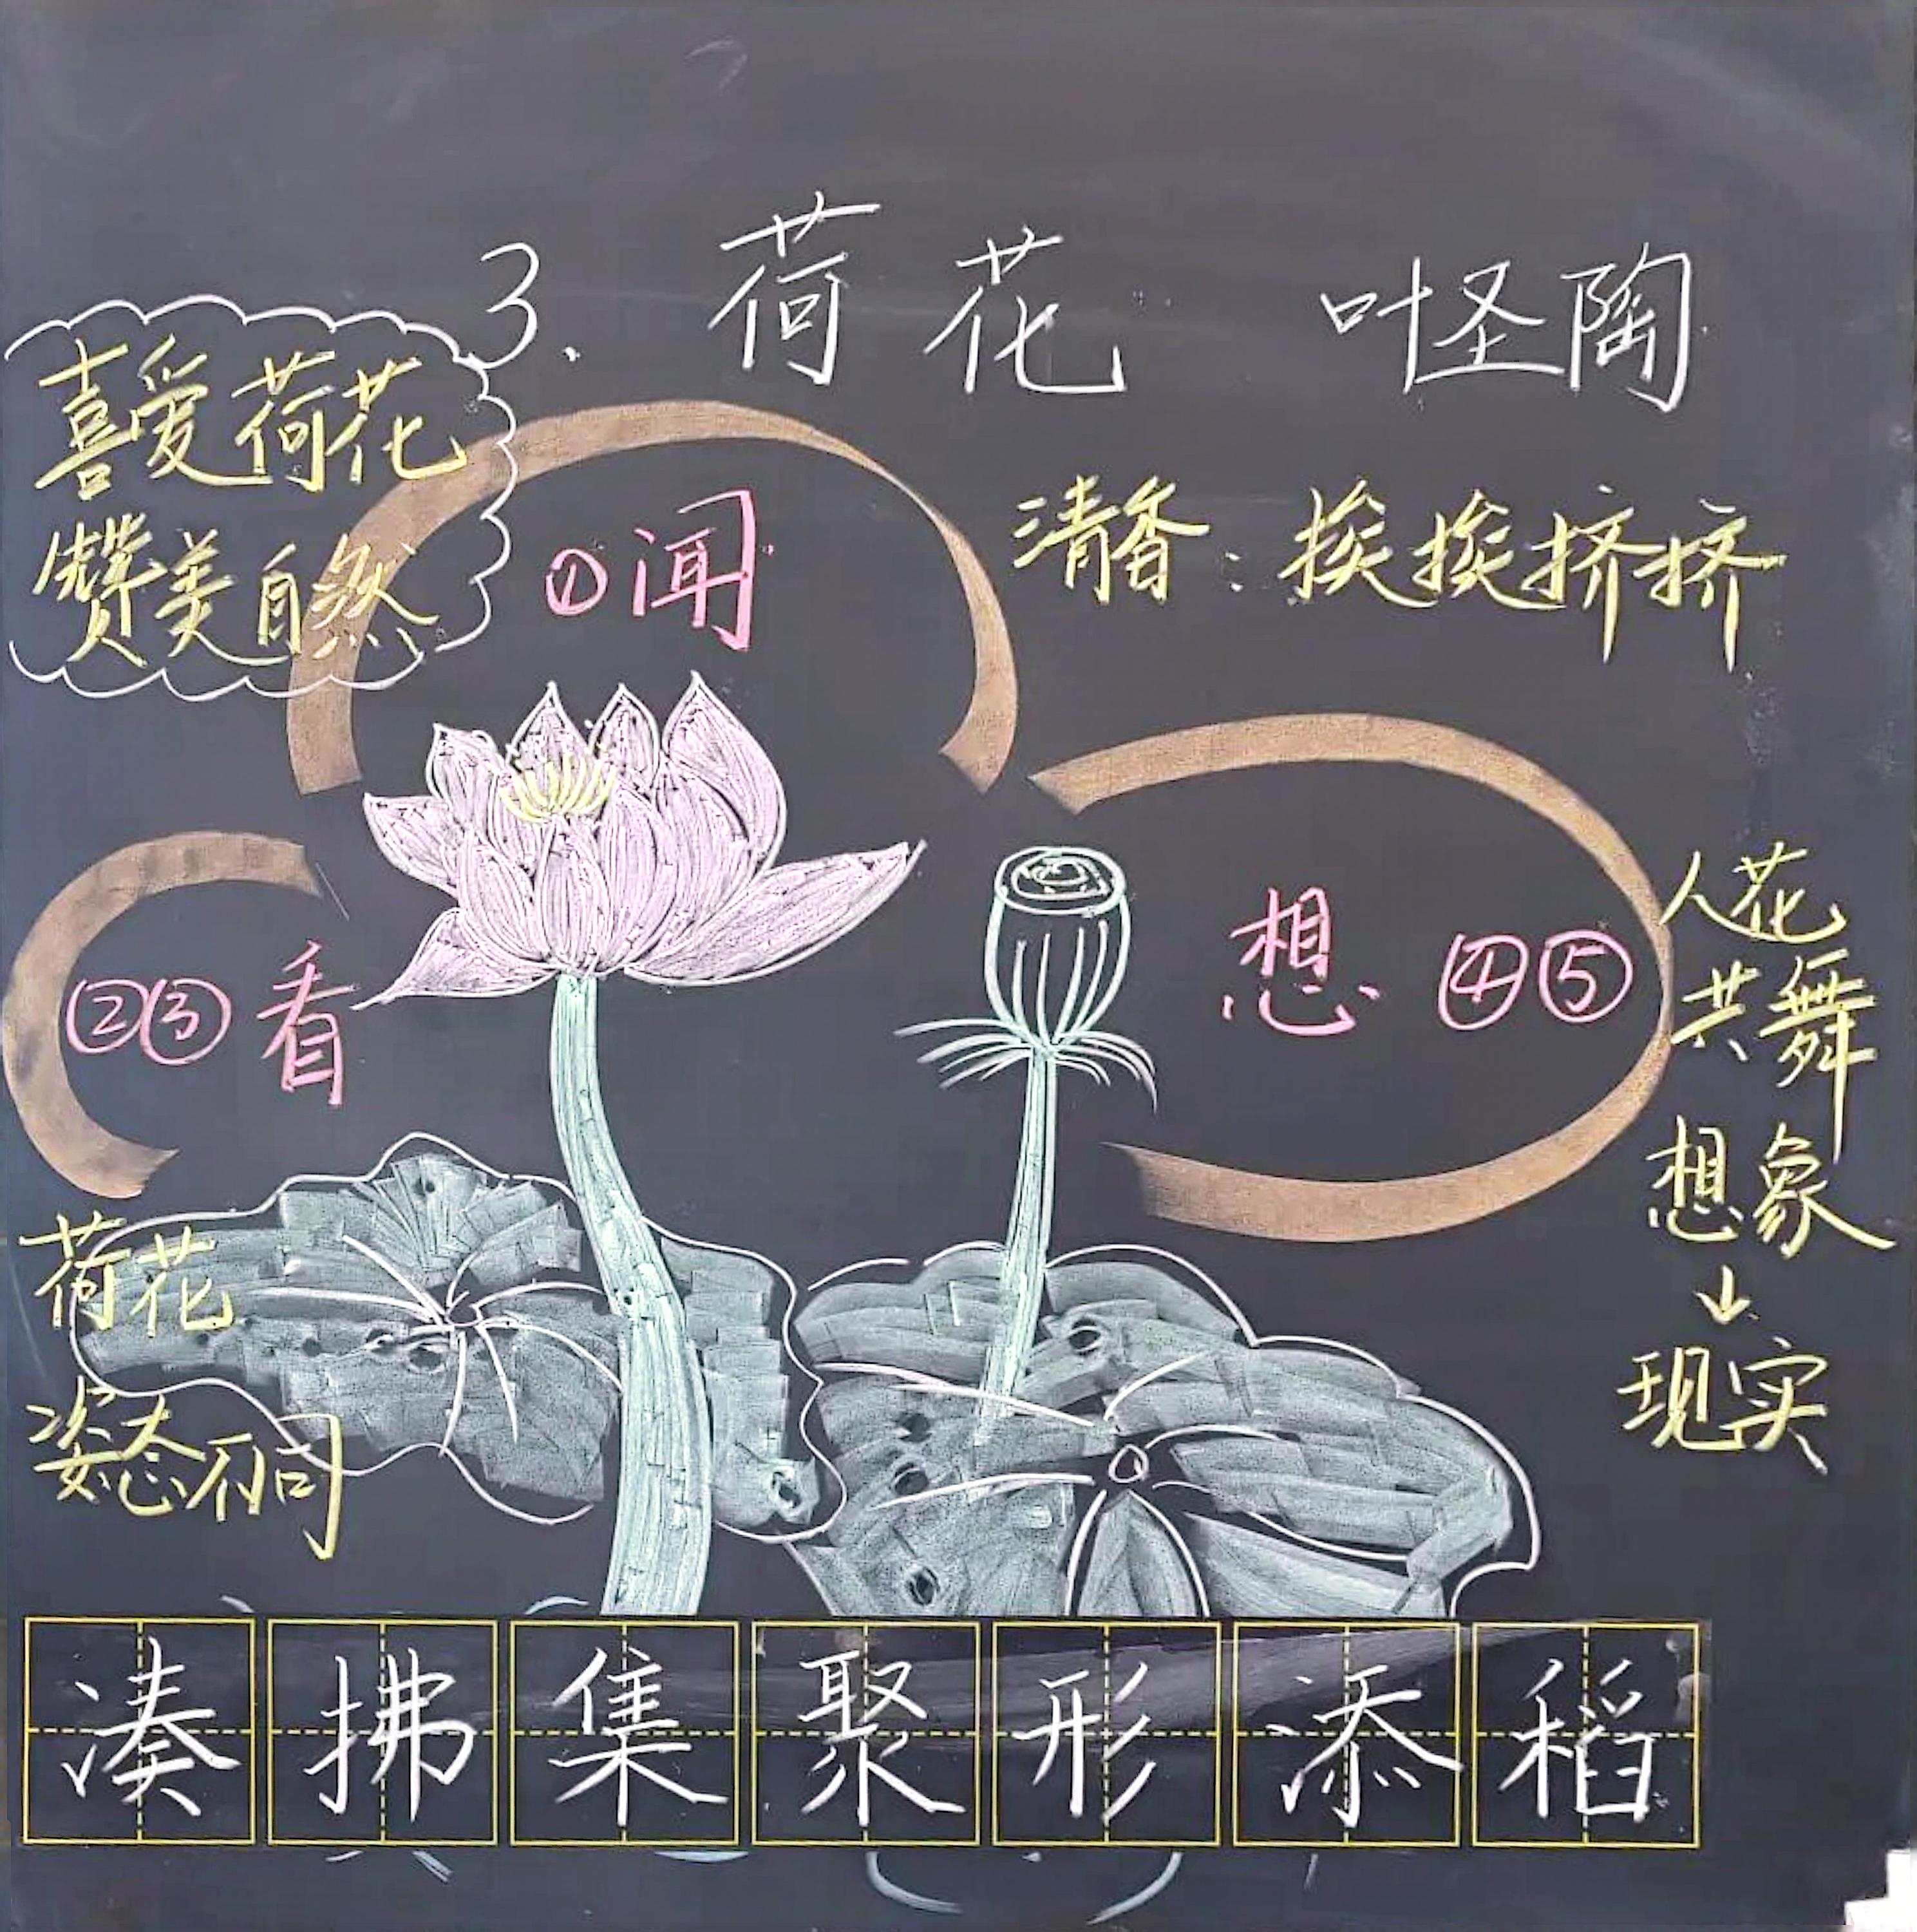 3. 荷花 叶圣陶
喜爱荷花
赞美自然
①闻
清香：挨挨挤挤
②③看
荷花
姿态不同
想 ④⑤
人花
共舞
想象
↓
现实
凑拂集聚形添稻